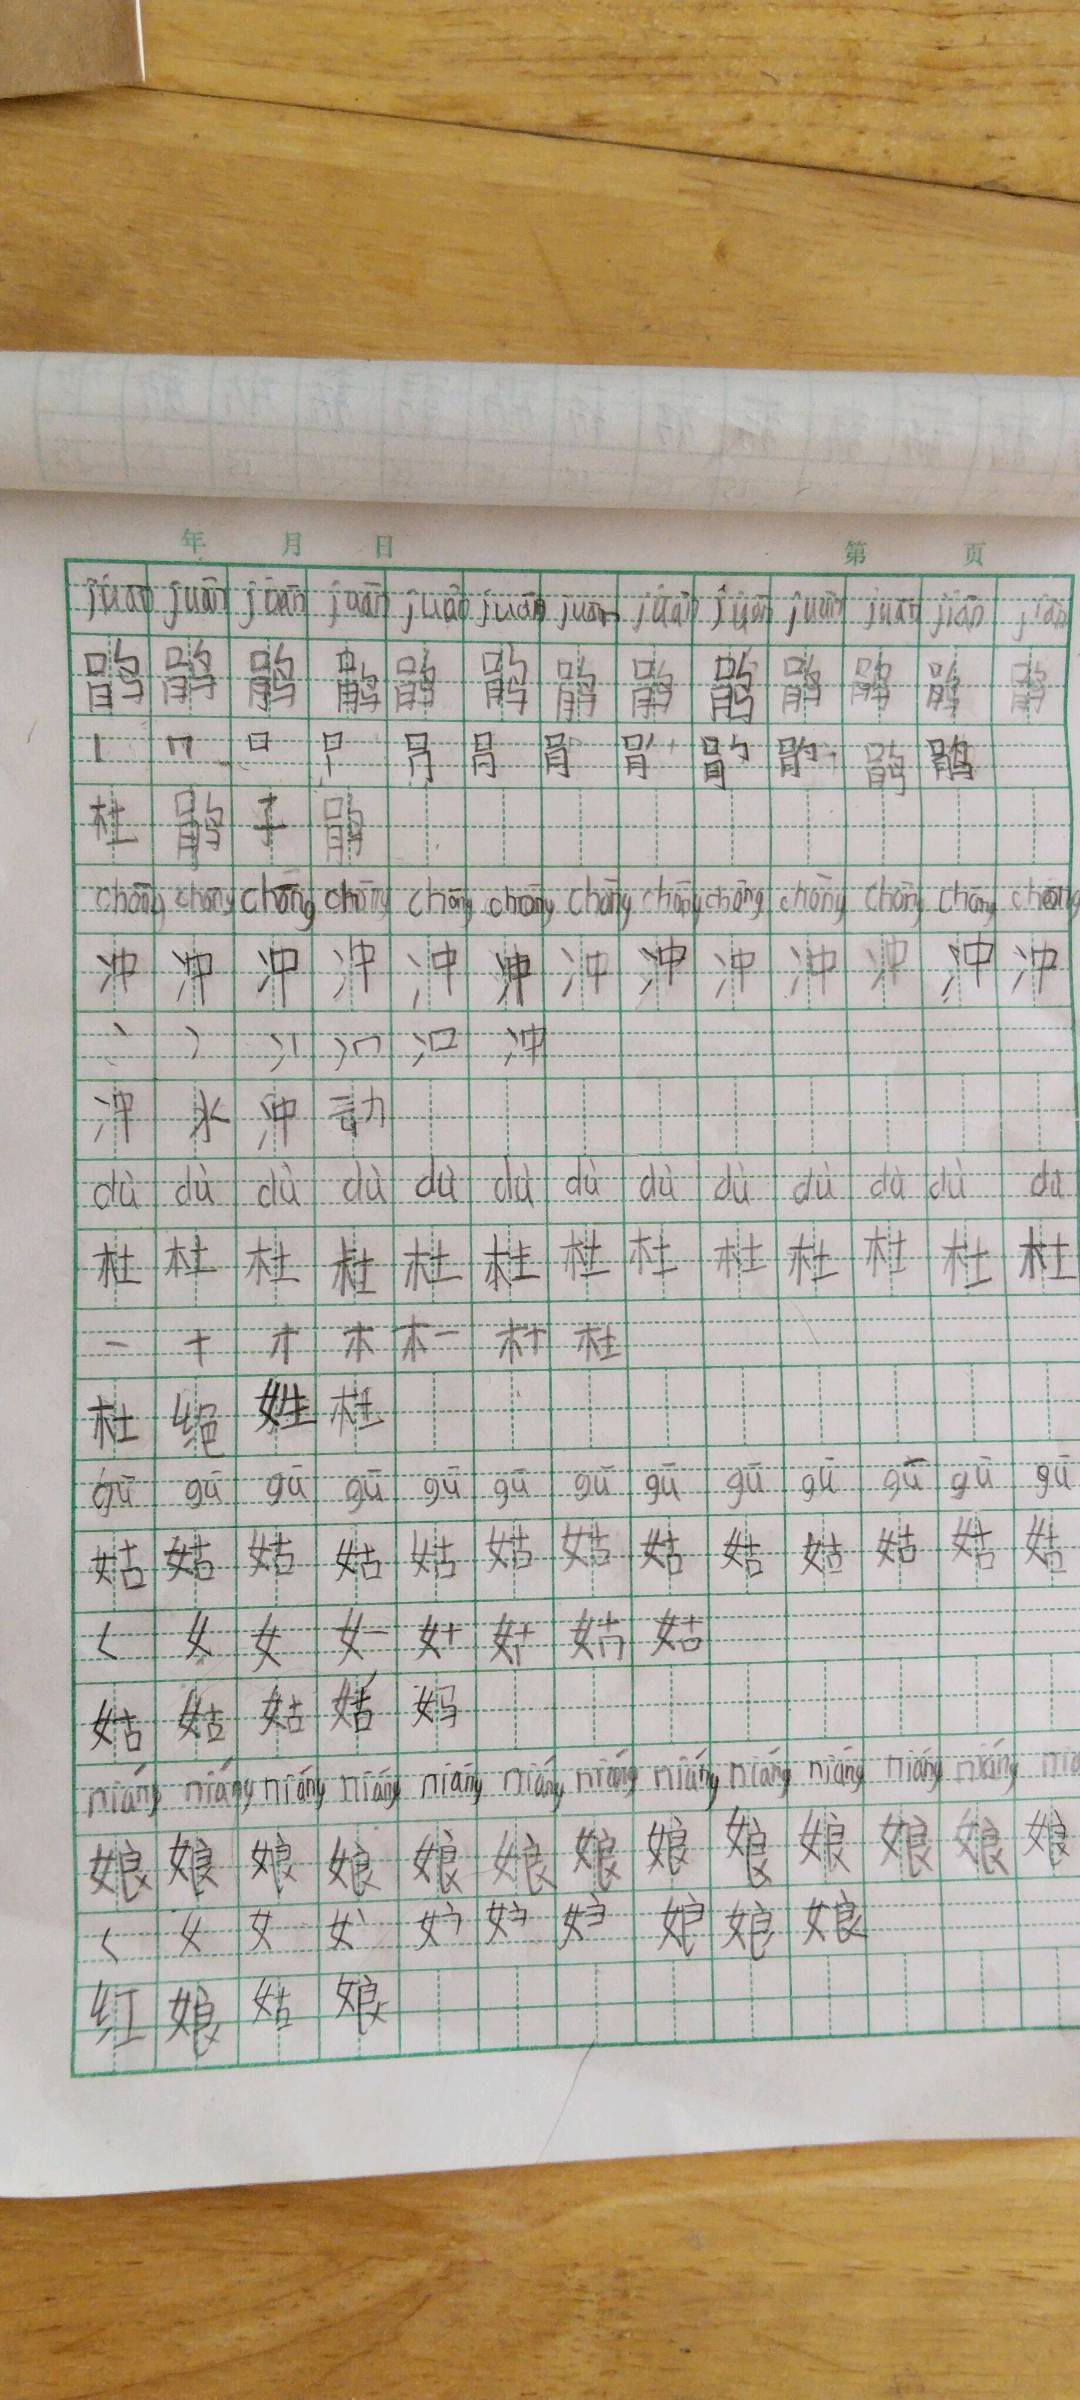 年 月 日 第 页
juān juān juān juān juān juān juān juān juān juān juān jiān jiān
鹃 鹃 鹃 鹃 鹃 鹃 鹃 鹃 鹃 鹃 鹃 鹃 鹃
丨 冂 口 鹃
杜 鹃 子 鹃
chōng chōng chōng chōng chōng chōng chōng chōng chōng chōng chōng chōng chōng
冲 冲 冲 冲 冲 冲 冲 冲 冲 冲 冲 冲 冲
丶 冫 冲
冲 水 冲 动
dù dù dù dù dù dù dù dù dù dù dù dù dù
杜 杜 杜 杜 杜 杜 杜 杜 杜 杜 杜 杜 杜
一 十 才 木 杜
杜 绝 姓 杜
gū gū gū gū gū gū gū gū gū gū gū gū gū
姑 姑 姑 姑 姑 姑 姑 姑 姑 姑 姑 姑 姑
𡿨 女 女 姑
姑 姑 姑 姑 妈
niáng niáng niáng niáng niáng niáng niáng niáng niáng niáng niáng niáng
娘 娘 娘 娘 娘 娘 娘 娘 娘 娘 娘 娘 娘
𡿨 女 女 娘
红 娘 姑 娘